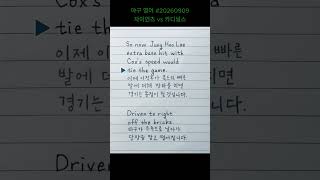 야구 영어 #20260909
자이언츠 vs 카디널스
So now Jung Hoo Lee
extra base hit with
Cox's speed would
tie the game.
이제 이정후가 콕스의 빠른
발에 더해 장타를 치면
경기는 동점이 될 것입니다.
Driven to right
off the bricks.
타구가 우측으로 날아가
담장을 맞고 떨어집니다.